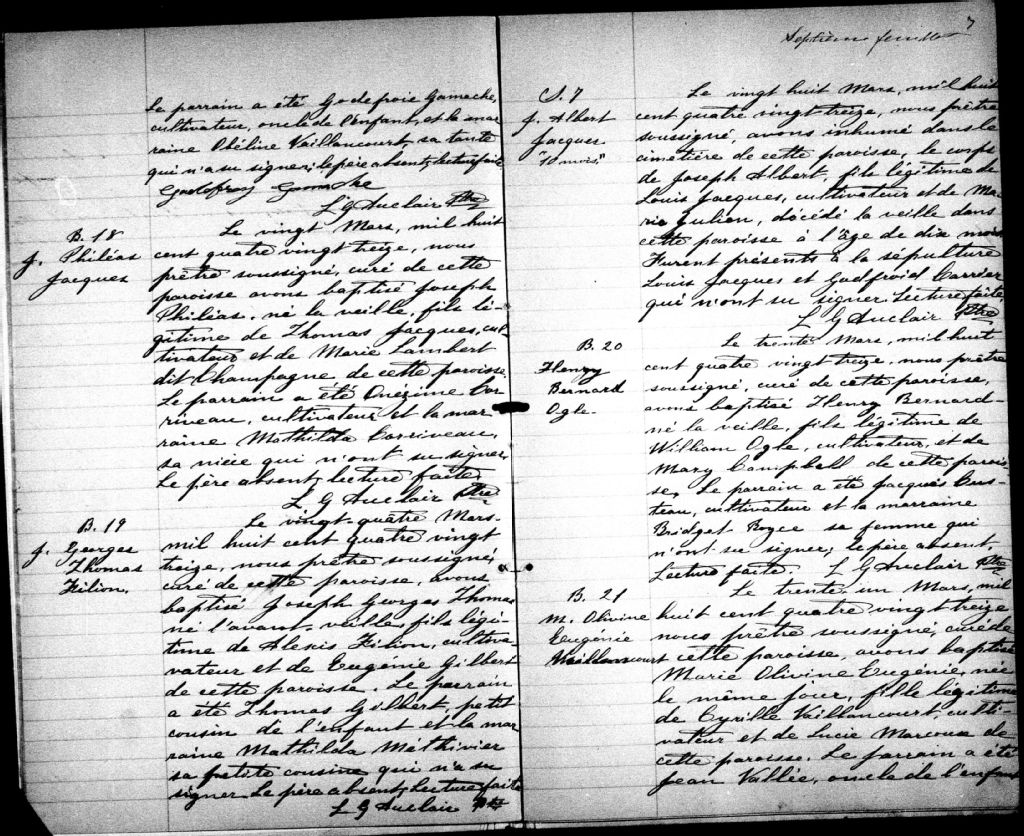 Le parrain a été Godefroie Gamache,
cultivateur, oncle de l'enfant, et la mar
raine Obéline Vaillancourt, sa tante
qui n'a su signer; le père absent, Lecture faite
Godefroy Gamache
L G Auclair Ptre
B. 18
J. Philéas
Jacques
Le vingt Mars, mil huit
cent quatre vingt treize, nous
prêtre soussigné, curé de cette
paroisse avons baptisé Joseph
Philéas, né la veille, fils lé-
gitime de Thomas Jacques, cul
tivateur et de Marie Lambert
dit Champagne de cette paroisse
Le parrain a été Onézime Cor
riveau, cultivateur et la mar
raine Mathilda Corriveau,
sa nièce qui n'ont su signer,
Le père absent, lecture faite
L G Auclair Ptre
B. 19
J. Georges
Thomas
Filion.
Le vingt-quatre Mars-
mil huit cent quatre vingt
treize, nous prêtre soussigné,
curé de cette paroisse, avons
baptisé Joseph Georges Thomas
né l'avant-veille, fils légi-
time de Alexis Filion, cultiva-
vateur et de Eugénie Gilbert
de cette paroisse. Le parrain
a été Thomas Gilbert, petit
cousin de l'enfant et la mar
raine Mathilda Méthivier
sa petite cousine qui n'a su
signer Le père absent, Lecture faite
L G Auclair Ptre
7
Septième feuillet
S. 7
J. Albert
Jacques
"10 mois"
Le vingt huit Mars, mil huit
cent quatre vingt treize, nous prêtre
soussigné, avons inhumé dans le
cimetière de cette paroisse, le corps
de Joseph Albert, fils légitime de
Louis Jacques, cultivateur et de Ma
rie Julien, décédé la veille dans
cette paroisse à l'âge de dix mois
Furent présents à la sépulture
Louis Jacques et Godfroid Carrier
qui n'ont su signer Lecture faite
L G Auclair Ptre
B. 20
Henry
Bernard
Ogle.
Le trente Mars, mil huit
cent quatre vingt treize, nous prêtre
soussigné, curé de cette paroisse,
avons baptisé Henry Bernard-
né la veille, fils légitime de
William Ogle, cultivateur, et de
Mary Campbell de cette parois-
se, Le parrain a été Jacques
teau, cultivateur et la marraine
Bridget Boyce sa femme qui
n'ont su signer; le père absent,
Lecture faite L G Auclair Ptre
B. 21
M. Olivine
Eugénie
Vaillancourt
Le trente un Mars, mil
huit cent quatre vingt treize
nous prêtre soussigné, curé de
cette paroisse, avons baptisé
Marie Olivine Eugénie, née
le même jour, fille légitime
de Cyrille Vaillancourt, culti-
vateur et de Lucie Marcoux de
cette paroisse. Le parrain a été
Jean Vallée, oncle de l'enfant